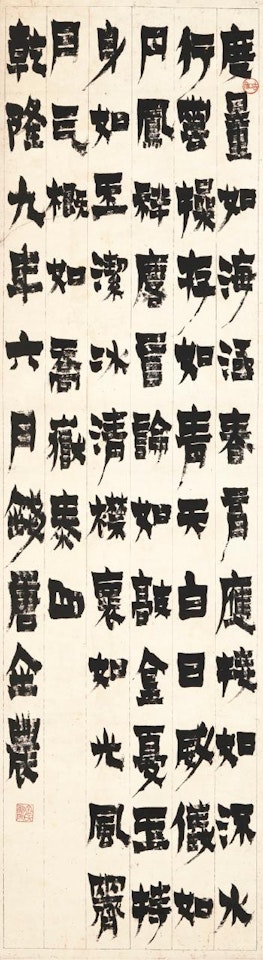 度量如海涵春育應接如流水
行雲操存如青天白日威儀如
丹鳳祥麐言論如敲金戛玉持
身如玉潔冰清襟褱如光風霽
月气概如喬嶽泰山
乾隆九年六月錢唐金農